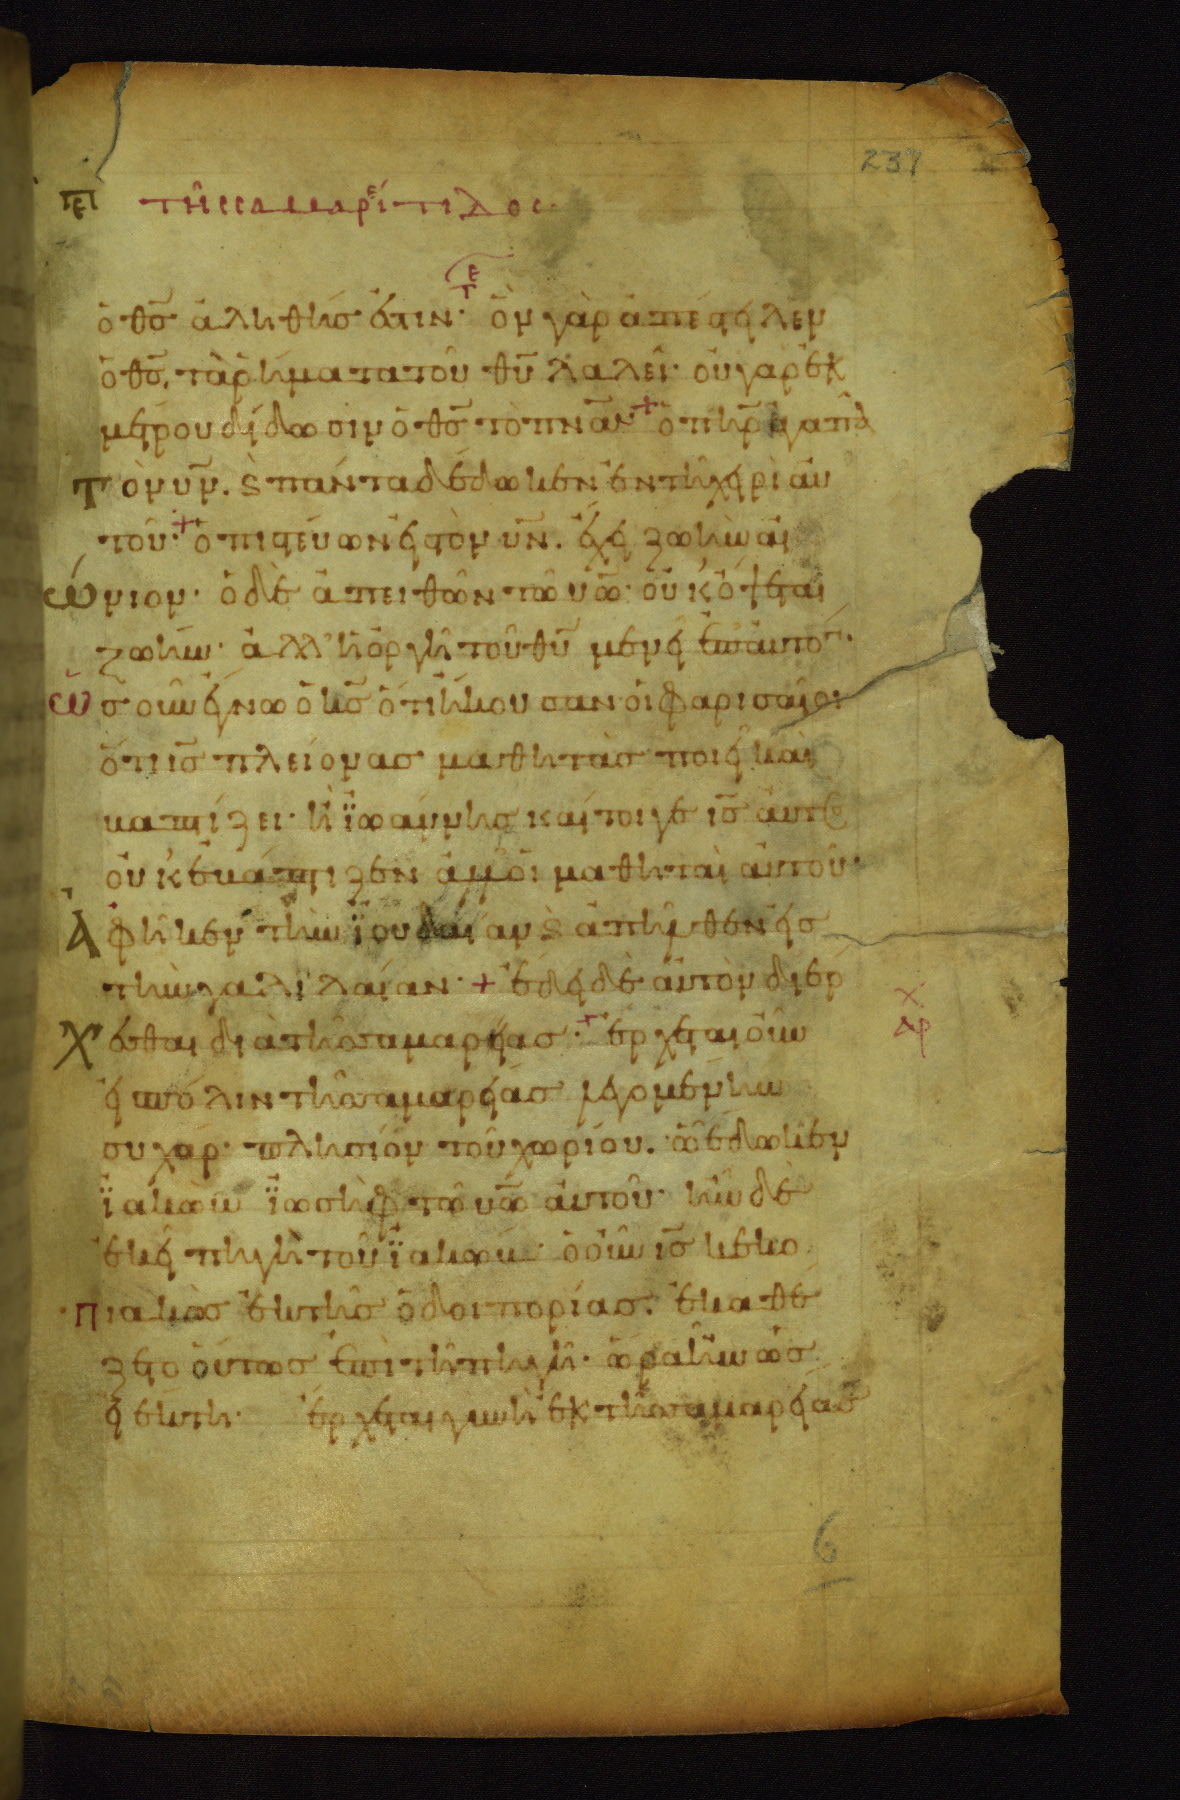 237
πε τῆς σαμαρείτιδος
ε
τ
ὁ θς̄ ἀληθής ἐστιν· ὃν γὰρ ἀπέστειλεν
ὁ θς̄, τὰ ῥήματα τοῦ θῡ λαλεῖ· οὐ γὰρ ἐκ
μέτρου δίδωσιν ὁ θς̄ τὸ πνᾱ· + ὁ πηρ̄ ἀγαπᾶ
τὸν υν̄. ϗ πάντα δέδωκεν ἐν τῆ χειρὶ αὐ
τοῦ· + ὁ πιστεύων εἰς τὸν υν̄. ἔχει ζωὴν αἰ
ώνιον· ὁ δὲ ἀπειθῶν τῶ υω̄· οὐκ ὄψεται
ζωήν· ἀλλ' ἡ ὀργὴ τοῦ θῡ μένει ἐπ' αὐτόν·
ὡς οὖν ἔγνω ὁ κς̄ ὅτι ἤκουσαν οἱ φαρισαῖοι
ὅτι ις̄ πλείονας μαθητὰς ποιεῖ καὶ
βαπτίζει· ἢ ϊωάννης καίτοιγε ις̄ αὐτὸς
οὐκ ἐβάπτιζεν ἀλλ' οἱ μαθηταὶ αὐτοῦ·
Ἀφῆκεν τὴν ϊουδαίαν ϗ ἀπῆλθεν εἰς
τὴν γαλιλαίαν· + ἔδει δὲ αὐτὸν διέρ
χεσθαι διὰ τῆς σαμαρείας· + ἔρχεται οὖν
εἰς πόλιν τῆς σαμαρείας λεγομένην
συχάρ· πλησίον τοῦ χωρίου. ὃ ἔδωκεν
ϊακὼβ ϊωσὴφ τῶ υω̄ αὐτοῦ· ἦν δὲ
ἐκεῖ πηγὴ τοῦ ϊακώβ· ὁ οὖν ις̄ κεκο
πιακὼς ἐκ τῆς ὁδοιπορίας. ἐκαθέ
ζετο οὕτως ἐπὶ τῆ πηγῆ· ὥρα ἦν ὡς
εἰ ἕκτη· ἔρχεται γυνὴ ἐκ τῆς σαμαρείας
χ
αρ
6